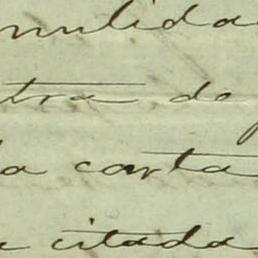 nulida
tra do
la carta
citada